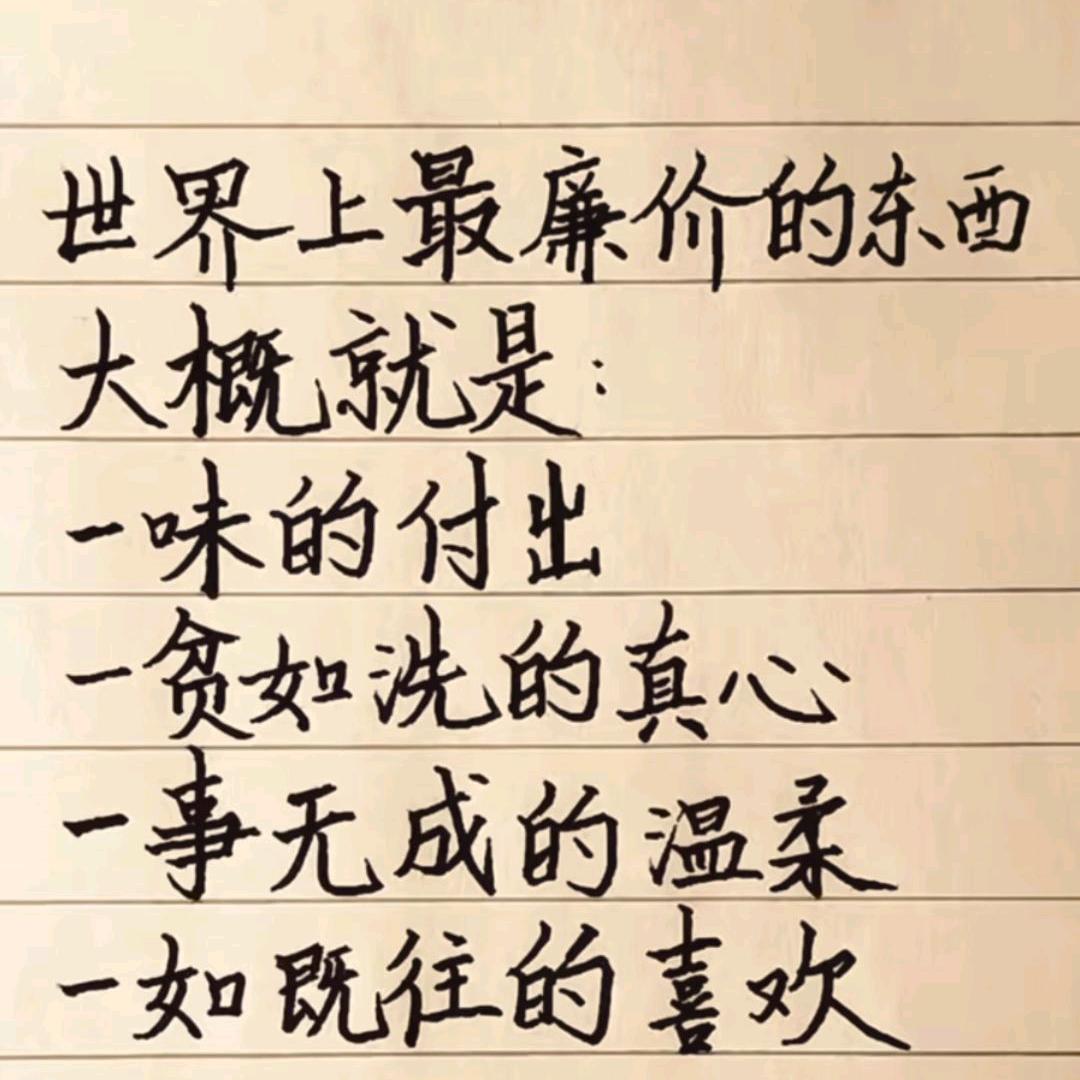 世界上最廉价的东西
大概就是:
一味的付出
一贫如洗的真心
一事无成的温柔
一如既往的喜欢